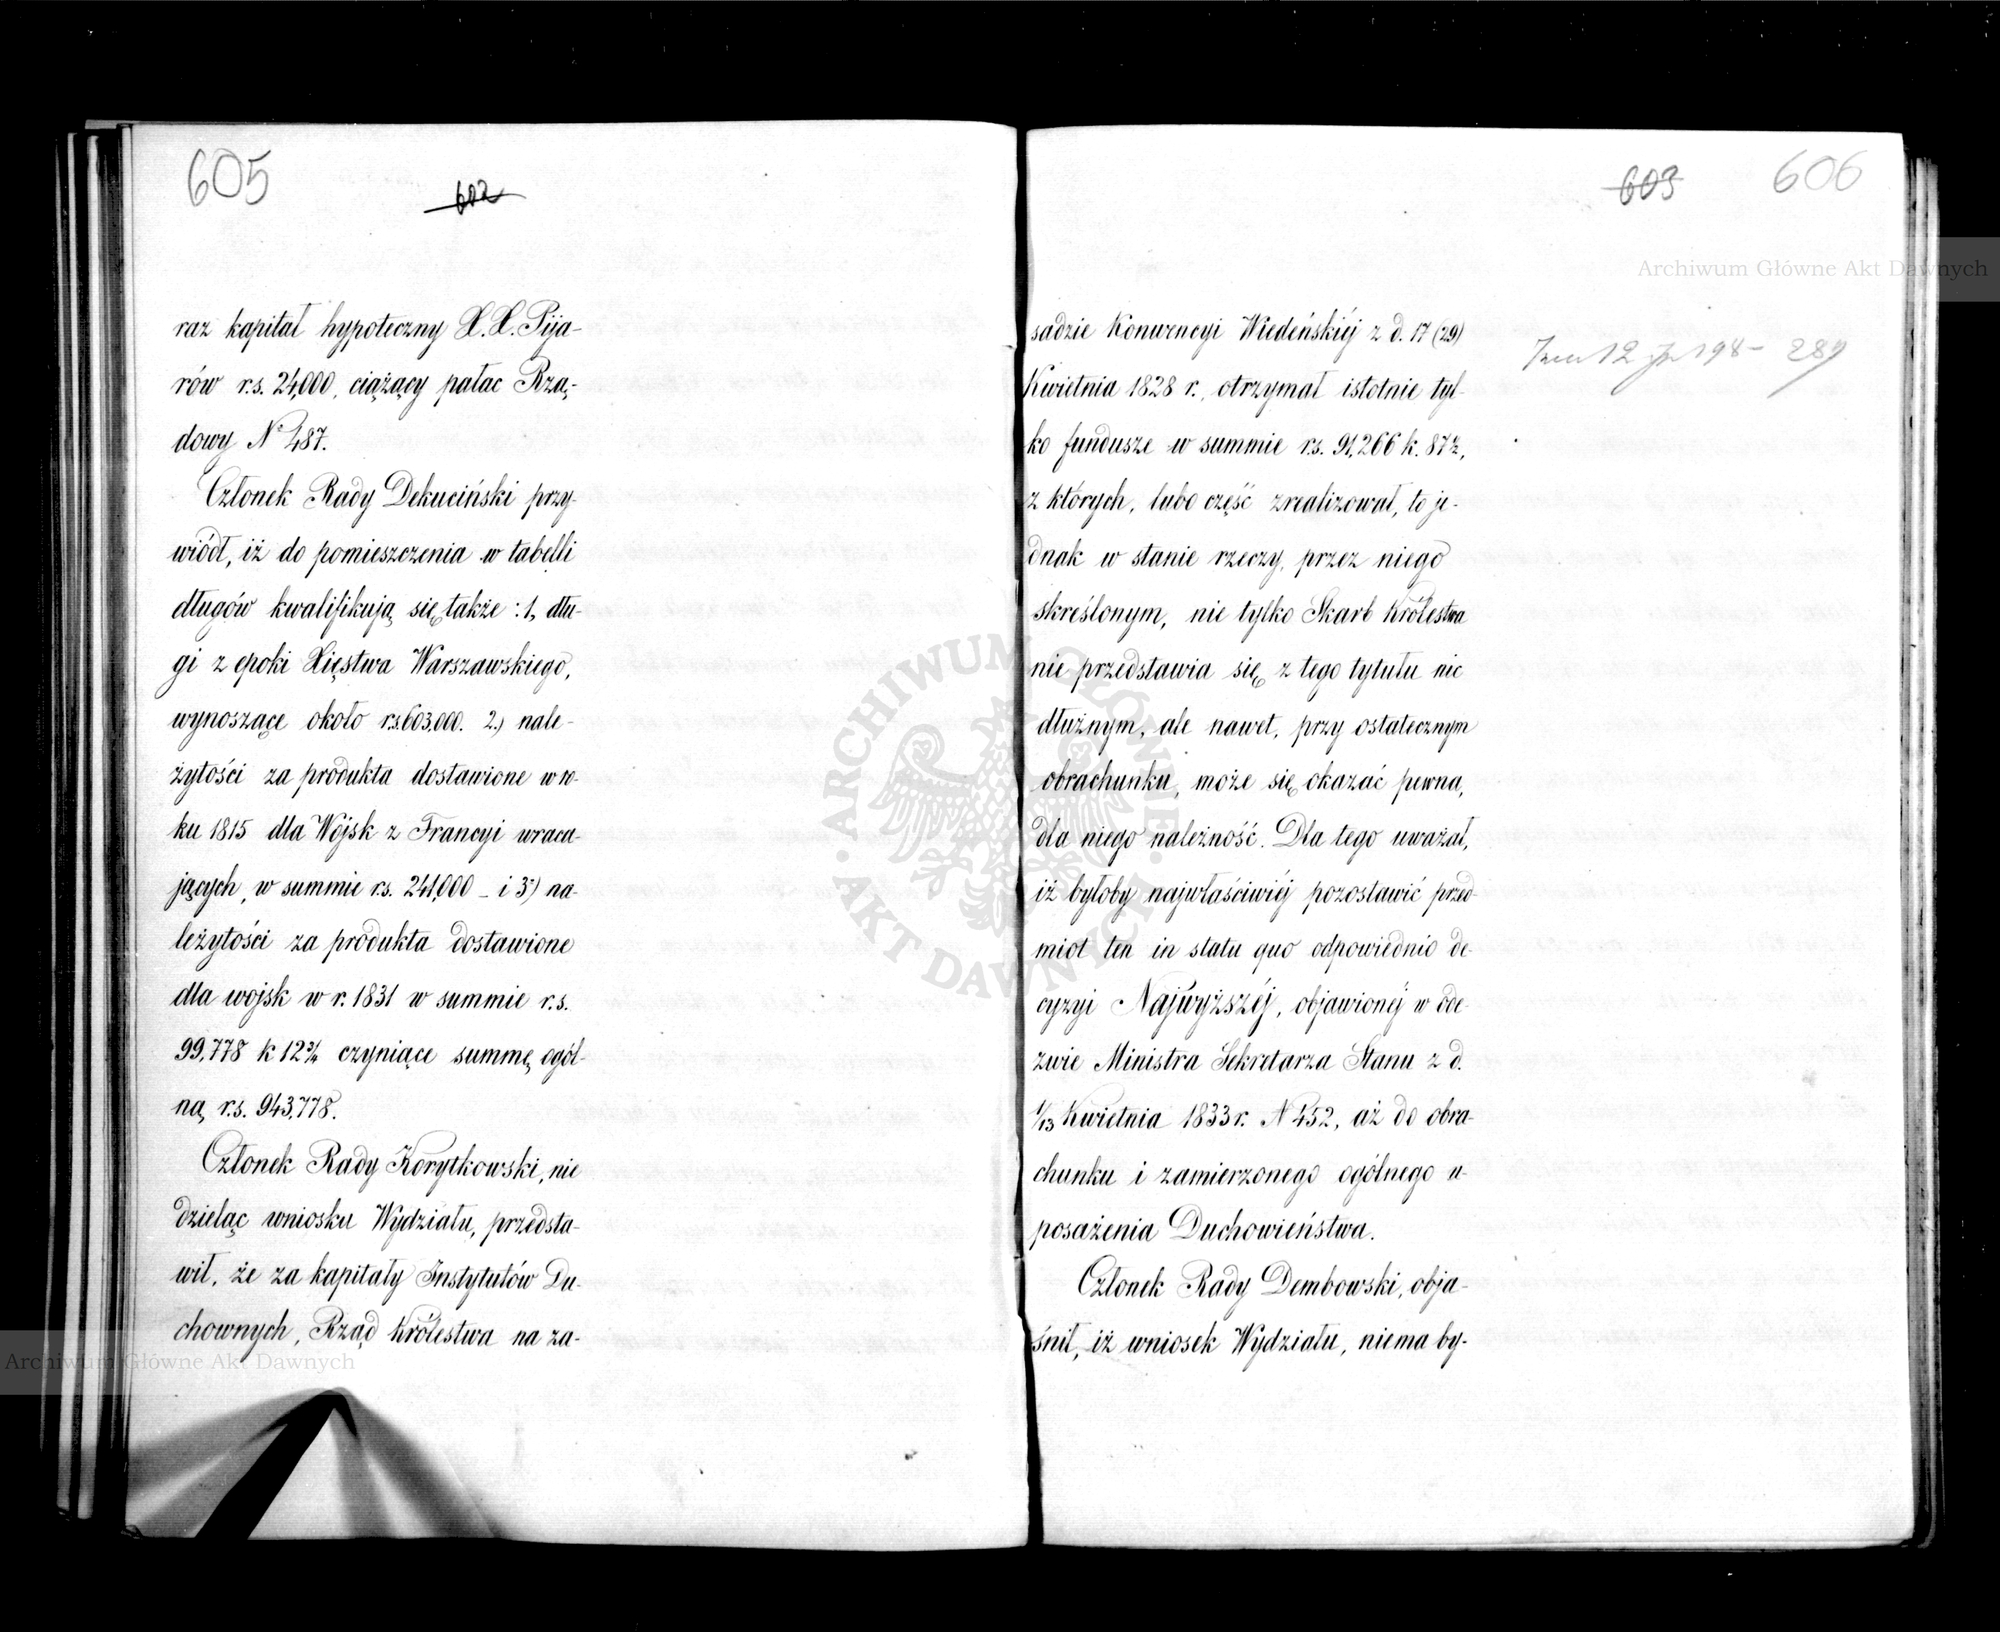 605
602
raz kapitał hypoteczny X.X. Pija-
rów r.s. 24,000, ciążący pałac Rzą-
dowy Nº 487.
Członek Rady Dekuciński przy-
wiódł, iż do pomieszczenia w tabelli
długów kwalifikują się także: 1, dłu-
gi z epoki Xięstwa Warszawskiego,
wynoszące około r.s. 603,000. 2.) nale-
żytości za produkta dostawione w ro-
ku 1815 dla Wojsk z Francyi wraca-
jących, w summie r.s. 241,000 – i 3º) na-
leżytości za produkta dostawione
dla wojsk w r. 1831 w summie r.s.
99,778 k 12¾ czyniące summę ogól-
ną r.s. 943,778.
Członek Rady Korytkowski, nie
dzieląc wniosku Wydziału, przedsta-
wił, że za kapitały Instytutów Du-
chownych, Rząd Królestwa na za-
603
606
sadzie Konwencyi Wiedeńskiéj z d. 17 (29)
Kwietnia 1828 r., otrzymał istotnie tyl-
ko fundusze w summie r.s. 91,266 k. 87½,
z których, lubo część zrealizował, to je-
dnak w stanie rzeczy, przez niego
skreślonym, nie tylko Skarb Królestwa
nie przedstawia się z tego tytułu nic
dłużnym, ale nawet, przy ostatecznym
obrachunku, może się okazać pewna,
dla niego należność. Dla tego uważał,
iż byłoby najwłaściwiéj pozostawić przed-
miot ten in statu quo odpowiednio de-
cyzyi Najwyższéj, objawionéj w ode-
zwie Ministra Sekretarza Stanu z d.
1/13 Kwietnia 1833 r. N 452, aż do obra-
chunku i zamierzonego ogólnego u-
posażenia Duchowieństwa.
Członek Rady Dembowski, obja-
śnił, iż wniosek Wydziału, niema by-
12 198 – 289
Archiwum Główne Akt Dawnych
ARCHIWUM GŁÓWNE
AKT DAWNYCH
Archiwum Główne Akt Dawnych